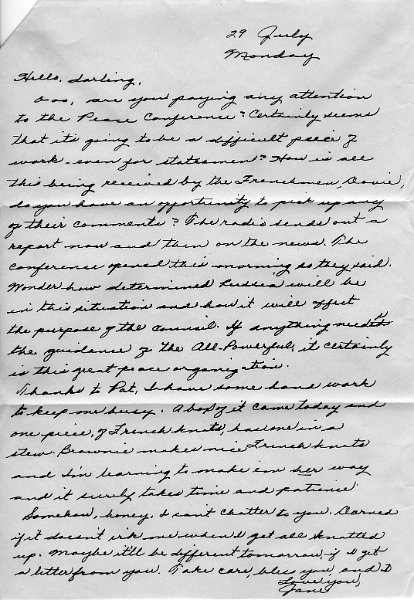 29 July
Monday
Hello, darling,
Ooo, are you paying any attention
to the Peace Conference? Certainly seems
that it's going to be a difficult piece of
work - even for "statesmen". How is all
this being received by the Frenchmen, Dovie,
do you have an opportunity to pick up any
of their comments? The radio sends out a
report now and then on the news. The
conference opened this morning so they said.
Wonder how determined Russia will be
in this situation and how it will affect
the purpose of the Council. If anything needed
the guidance of the All-Powerful, it certainly
is this great peace organization.
Thanks to Pat, I have some hand work
to keep me busy. A box of it came today and
one piece, of French knots, has me in a
stew. Brownie makes nice French knots
and I'm learning to make 'em her way
and it surely takes time and patience
Somehow, honey, I can't chatter to you. Darned
if it doesn't irk me when I get all knotted
up. Maybe it'll be different tomorrow, if I get
a letter from you. Take care, bless you, and I
Love you,
Jane